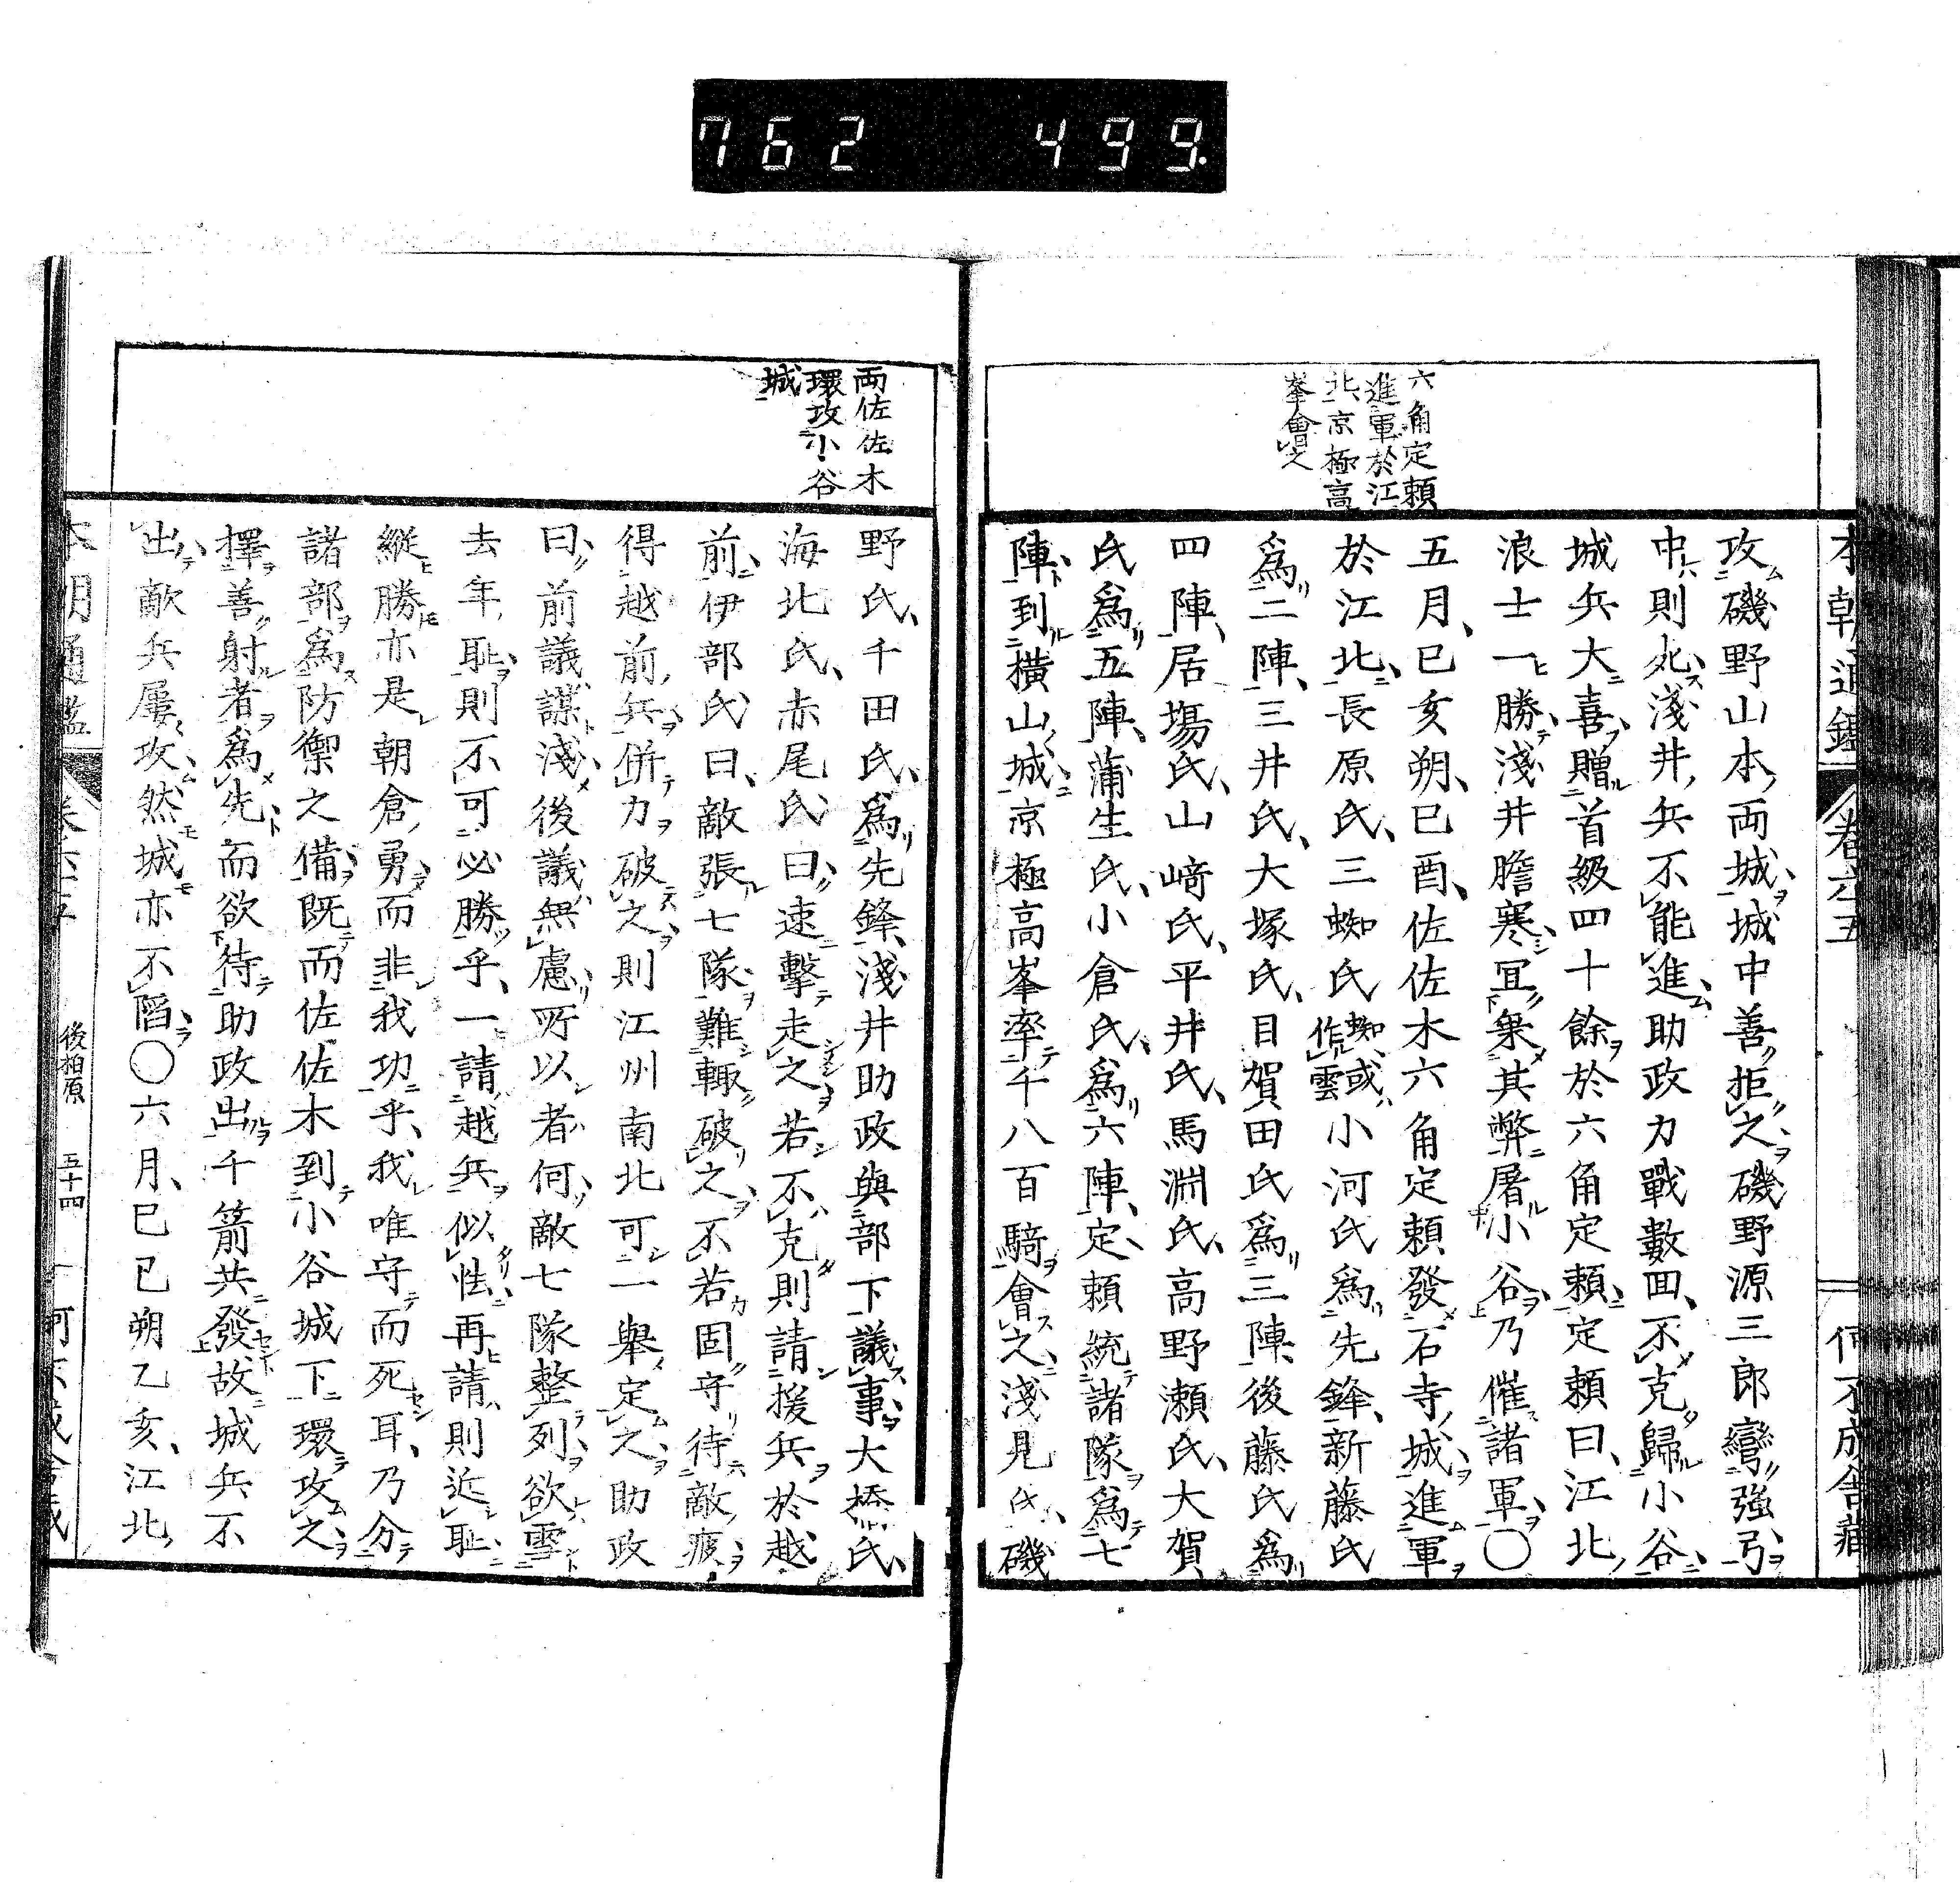 762 499
六角定頼
進軍於江
北京極高
峯會之
攻磯野山本両城城中善拒之磯野源三郎彎強弓
中則死淺井兵不能進助政力戰數囬不克歸小谷
城兵大喜贈首級四十餘於六角定頼定頼曰江北
浪士一勝淺井膽寒冝乗其弊屠小谷乃催諸軍〇
五月已亥朔已酉佐佐木六角定頼發石寺城進軍
於江北長原氏三蜘氏蜘或作雲小河氏爲先鋒新藤氏
爲二陣三井氏大塚氏目賀田氏爲三陣後藤氏爲
四陣居塲氏山﨑氏平井氏馬淵氏高野瀬氏大賀
氏爲五陣蒲生氏小倉氏爲六陣定頼統諸隊爲七
陣到横山城京極高峯率千八百騎會之淺見氏磯
両佐佐木
環攻小谷
城
野氏千田氏爲先鋒淺井助政與部下議事大橋氏
海北氏赤尾氏曰速擊走之若不克則請援兵於越
前伊部氏曰敵張七隊難輙破之不若固守待敵疲
得越前兵併力破之則江州南北可一舉定之助政
曰前議謀淺後議無慮所以者何敵七隊整列欲雪
去年耻則不可必勝乎一請越兵似怯再請則近耻
縦勝亦是朝倉勇而非我功乎我唯守而死耳乃分
諸部爲防禦之備既而佐佐木到小谷城下環攻之
擇善射者爲先而欲待助政出千箭共發故城兵不
出敵兵屢攻然城亦不䧟〇六月已巳朔乙亥江北
本朝通鑑
後柏原 五十四